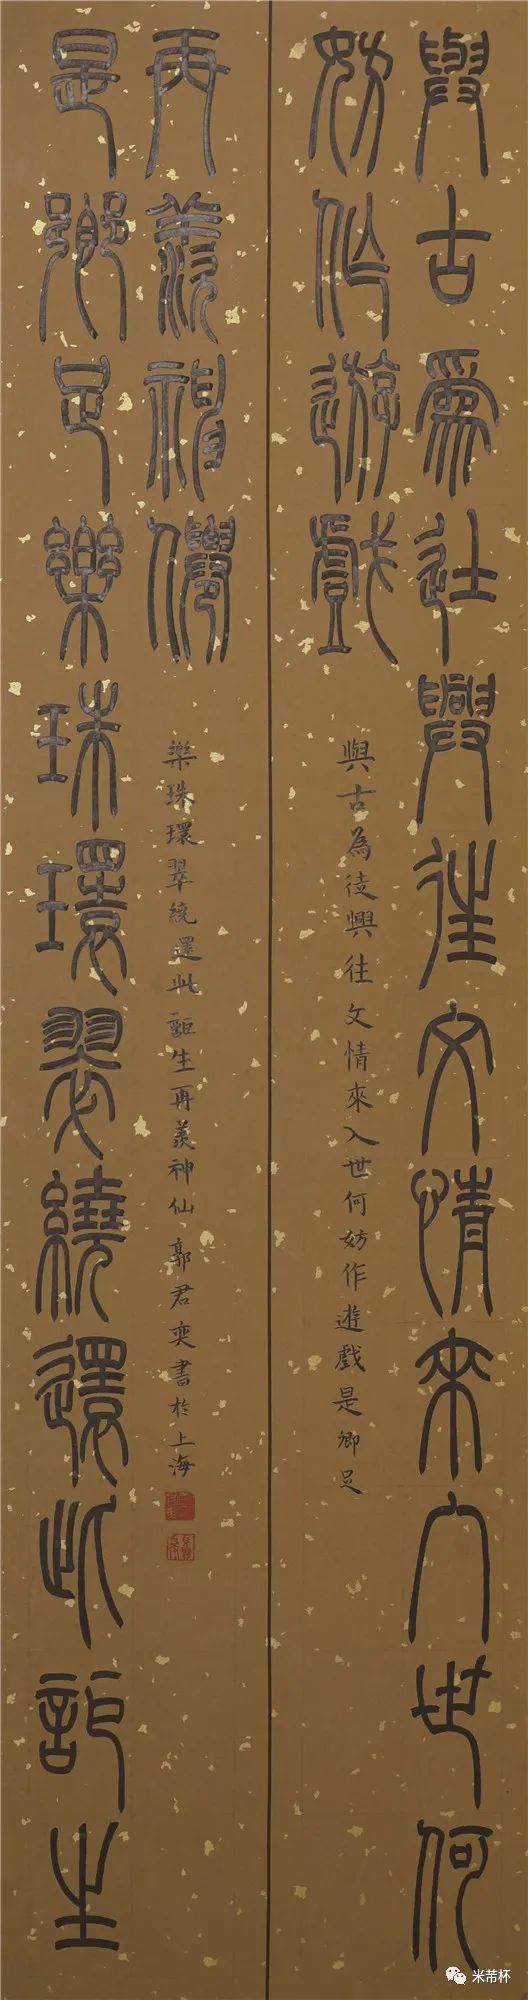 與古為徒興往文情來入世何
妨作遊戲
與古為徒興往文情來入世何妨作遊戲是鄉足
是鄉足樂珠環翠繞還此詎生
再羨神仙
樂珠環翠繞還此詎生再羨神仙 郭君奕書於上海
米芾杯